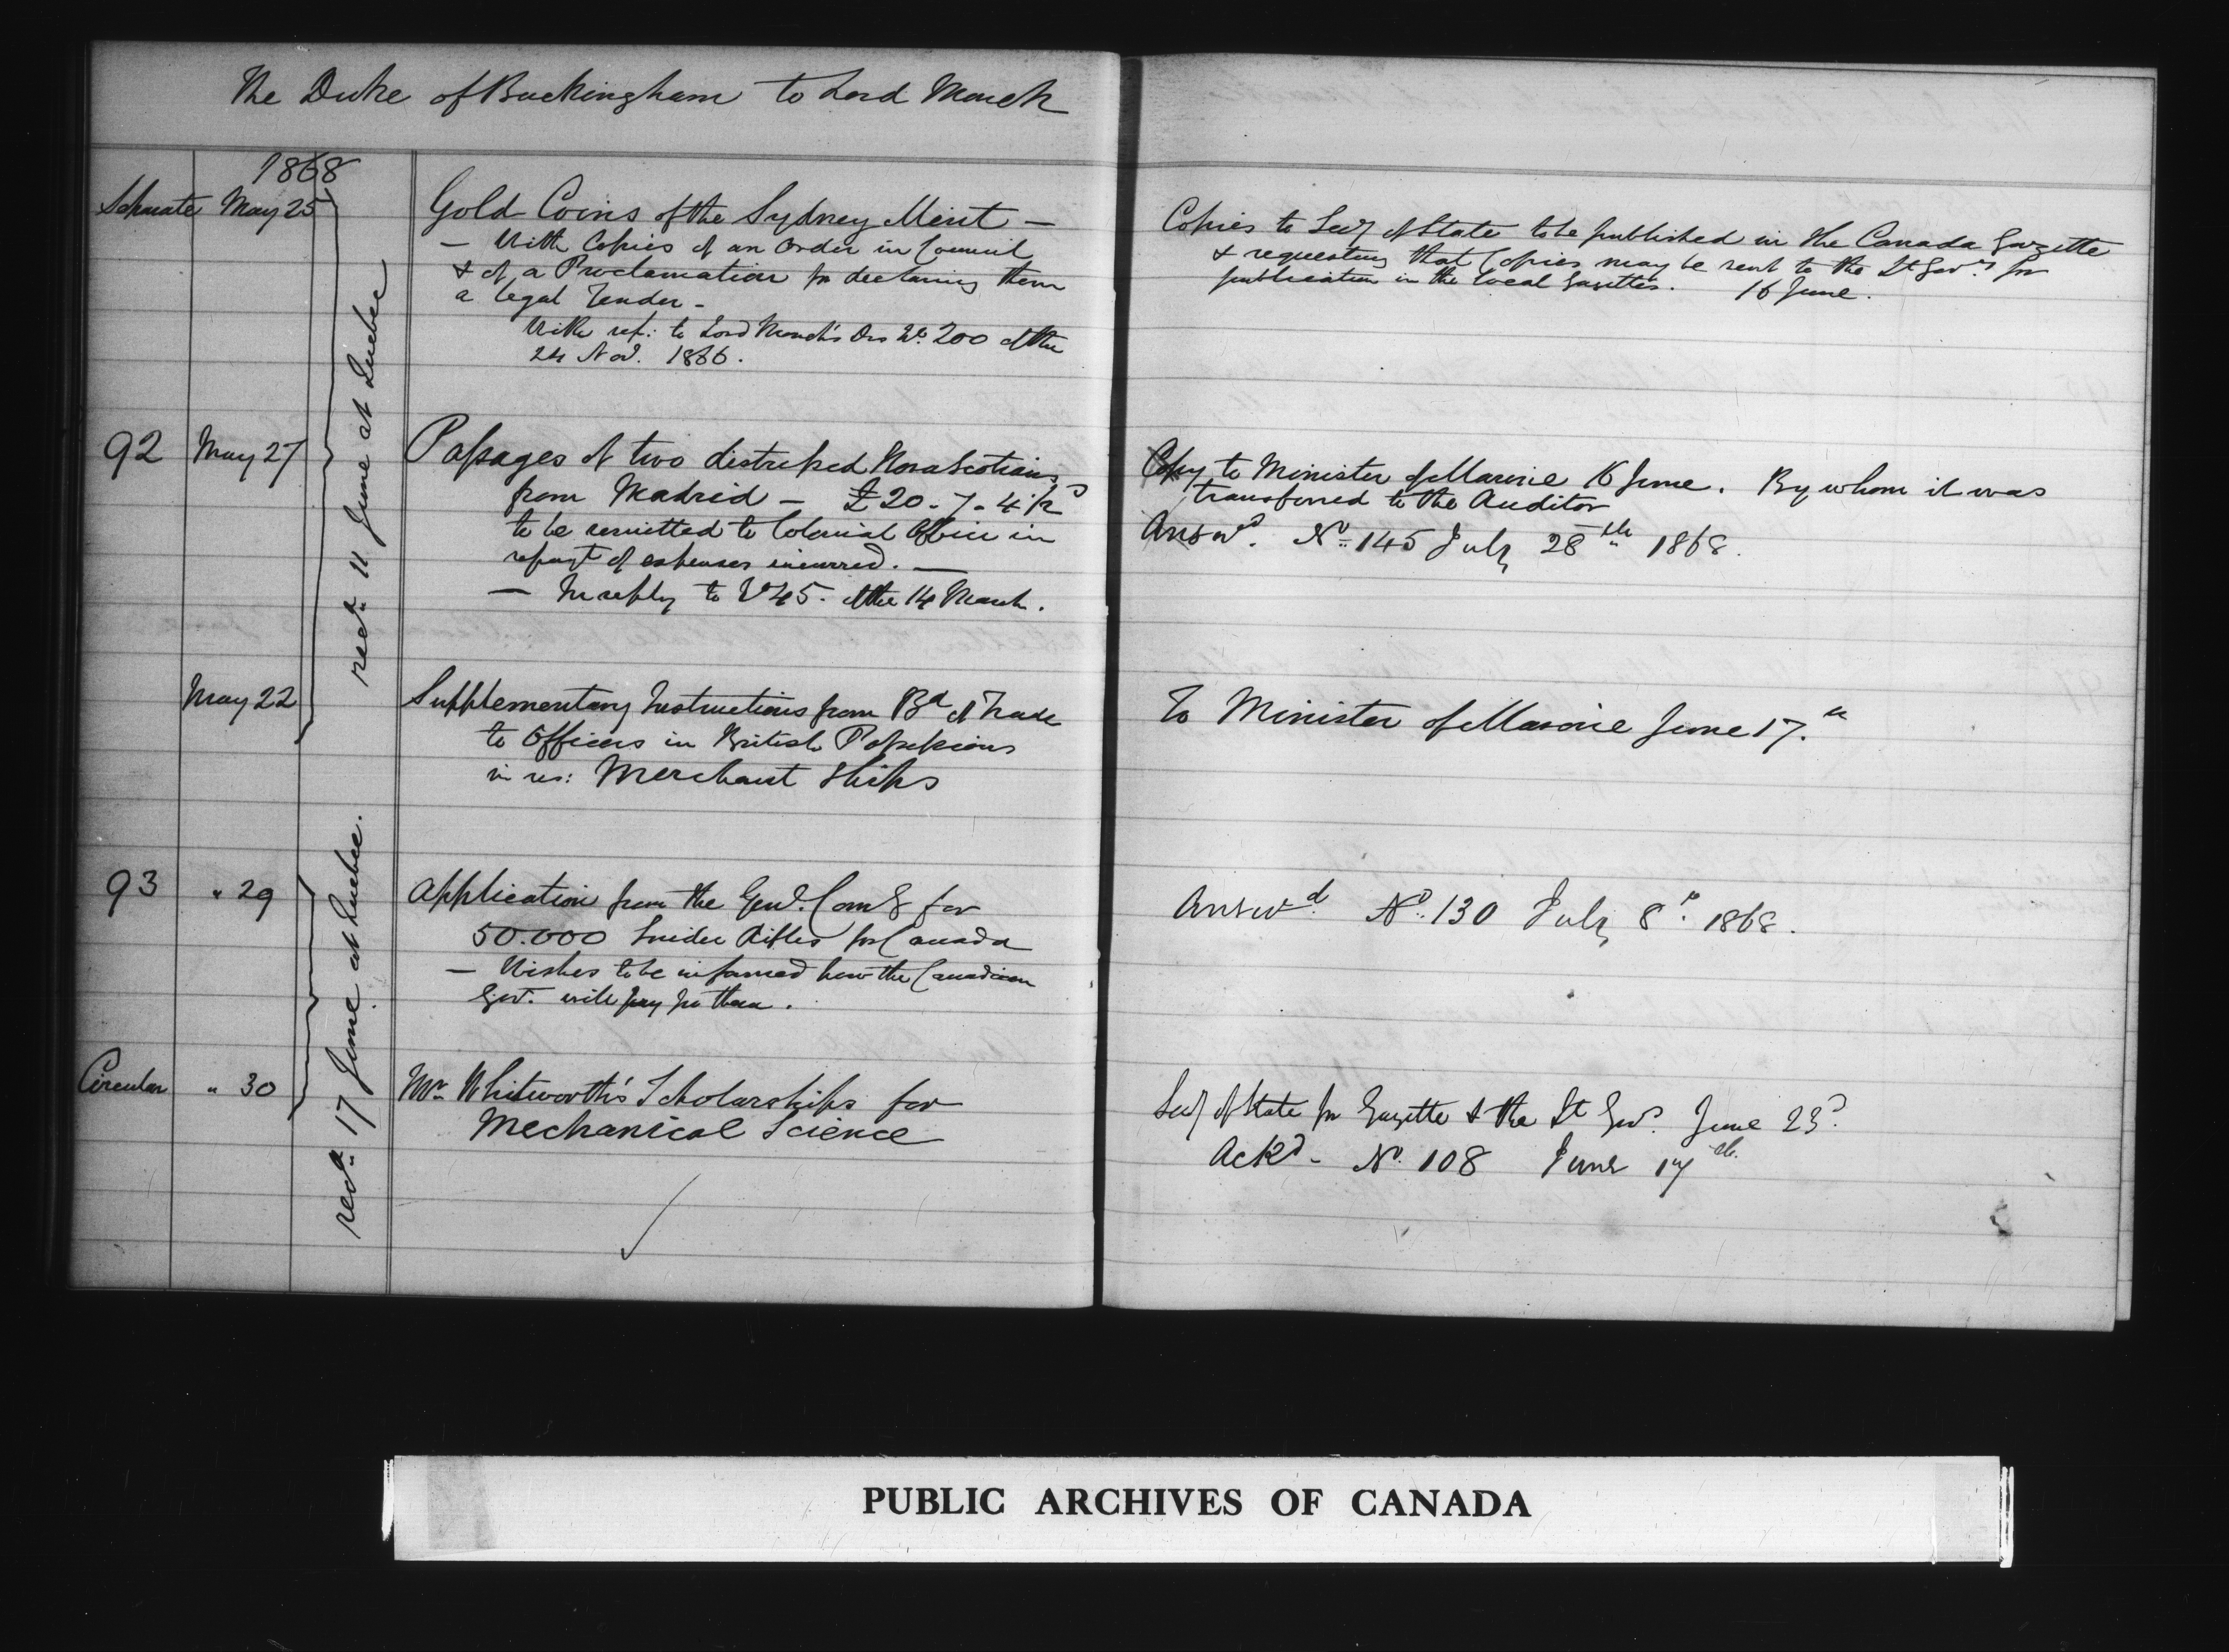 The Duke of Buckingham to Lord Monck
1868
Separate May 25
Gold Coins of the Sydney Mint —
— With Copies of an Order in Council
& of a Proclamation for declaring them
a legal Tender -
With ref: to Lord Monck's Des No 200 of the
24 Nov. 1866.
Copies to Secy of State to be published in the Canada Gazette
& requesting that Copies may be sent to the Lt Govrs for
publication in the local Gazettes. 16 June.
recd. 11 June at Quebec
92 May 27
Passages of two distressed Nova Scotians
from Madrid — £20-7-4½d
to be remitted to Colonial Office in
repayt of expenses incurred. —
— In reply to No 45. of the 14 March.
Copy to Minister of Marine 16 June. By whom it was
transferred to the Auditor
Answd. No. 145 July 28th 1868.
May 22
Supplementary Instructions from Bd of Trade
to Officers in British Possessions
in res: Merchant Ships
To Minister of Marine June 17.th
recd. 17 June at Quebec.
93 " 29
Application from the Genl. Comg for
50.000 Snider Rifles for Canada
— Wishes to be informed how the Canadian
Govt. will pay for them.
Answd. No. 130 July 8th 1868.
Circular " 30
Mr. Whitworth's Scholarships for
Mechanical Science
Secy of State for Gazette & the Lt Govs. June 23d.
Ackd - No. 108 June 17th.
PUBLIC ARCHIVES OF CANADA